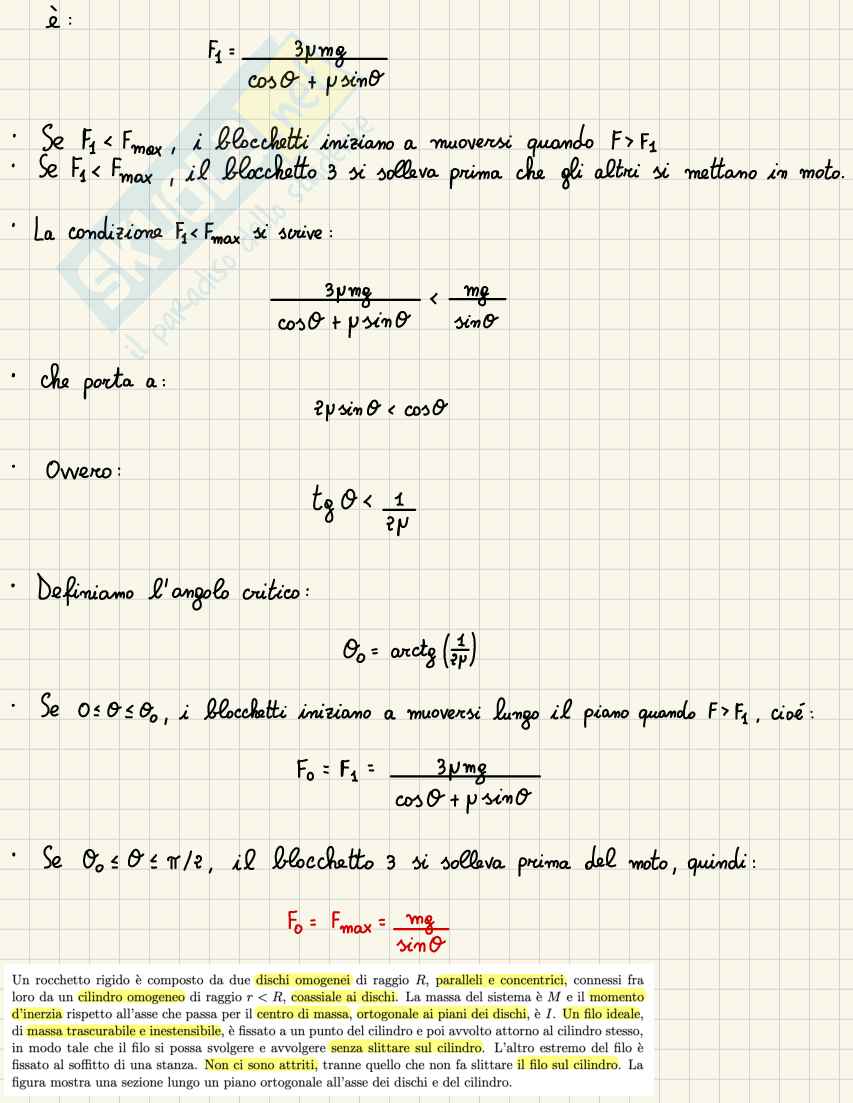 è :
F₁ = 3μmg / (cosθ + μsinθ)
· Se F₁ < Fmax , i blocchetti iniziano a muoversi quando F > F₁
· Se F₁ < Fmax , il blocchetto 3 si solleva prima che gli altri si mettano in moto.
· La condizione F₁ < Fmax si scrive :
3μmg / (cosθ + μsinθ) < mg / sinθ
· che porta a :
2μsinθ < cosθ
· Ovvero :
tgθ < 1 / 2μ
· Definiamo l'angolo critico :
θ₀ = arctg (1/2μ)
· Se 0 ≤ θ ≤ θ₀, i blocchetti iniziano a muoversi lungo il piano quando F > F₁ , cioé :
F₀ = F₁ = 3μmg / (cosθ + μsinθ)
· Se θ₀ ≤ θ ≤ π/2, il blocchetto 3 si solleva prima del moto, quindi :
F₀ = Fmax = mg / sinθ
Un rocchetto rigido è composto da due dischi omogenei di raggio R, paralleli e concentrici, connessi fra
loro da un cilindro omogeneo di raggio r < R, coassiale ai dischi. La massa del sistema è M e il momento
d'inerzia rispetto all'asse che passa per il centro di massa, ortogonale ai piani dei dischi, è I. Un filo ideale,
di massa trascurabile e inestensibile, è fissato a un punto del cilindro e poi avvolto attorno al cilindro stesso,
in modo tale che il filo si possa svolgere e avvolgere senza slittare sul cilindro. L'altro estremo del filo è
fissato al soffitto di una stanza. Non ci sono attriti, tranne quello che non fa slittare il filo sul cilindro. La
figura mostra una sezione lungo un piano ortogonale all'asse dei dischi e del cilindro.
skuola.net
il paradiso dello studente